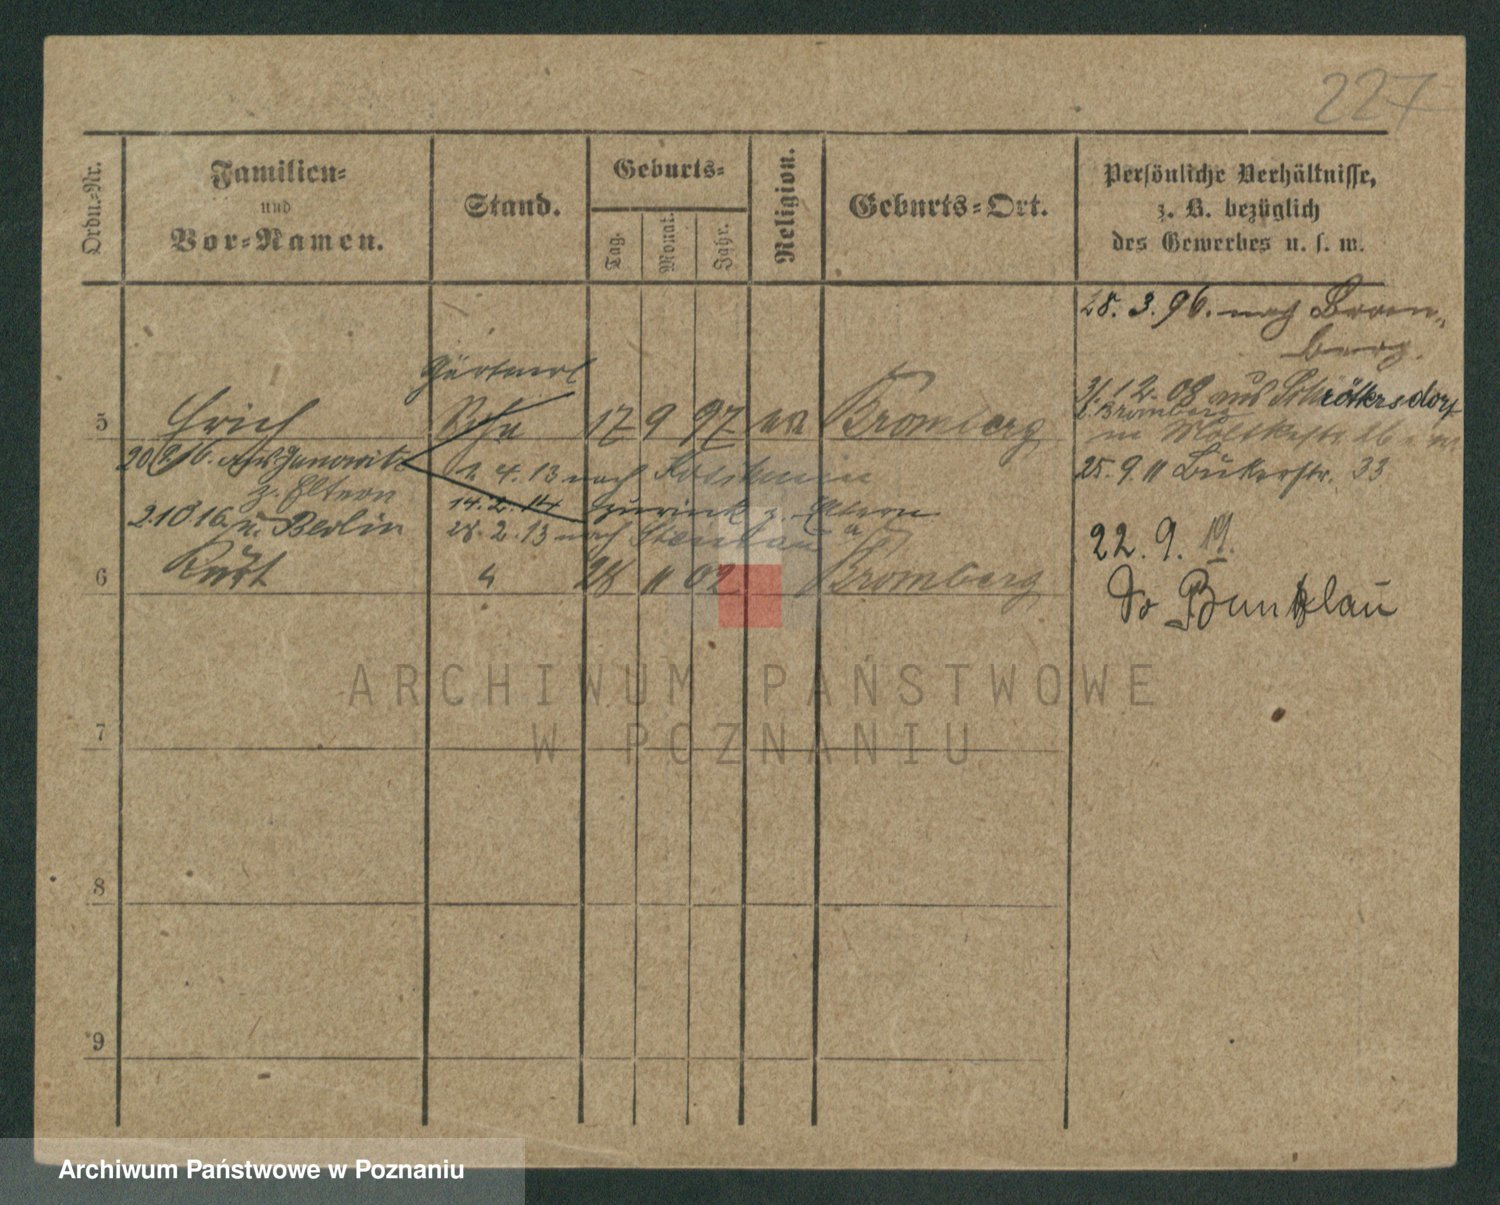 227
Ordn.-Nr.
Familien-
und
Vor-Namen.
Stand.
Geburts-
Tag.
Monat.
Jahr.
Religion.
Geburts-Ort.
Persönliche Verhältnisse,
z. B. bezüglich
des Gewerbes u. s. w.
28. 3. 96. nach Brom-
berg.
Gärtnerl
31. 12. 08 aus Schröttersdorf
b. Bromberg
5 Erich 17 9 97 Bromberg
z. Eltern
4. 13 nach
25. 9 11 Bukerstr. 33
14. 2. 14 zurück z. Eltern
2 10 16 n. Berlin
28. 2. 13 nach
22. 9. 19.
6 Kurt 28 11 02 Bromberg
Bunzlau
7
8
9
ARCHIWUM PAŃSTWOWE
W POZNANIU
Archiwum Państwowe w Poznaniu